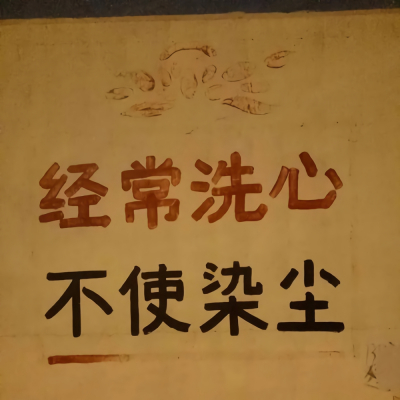 经常洗心
不使染尘